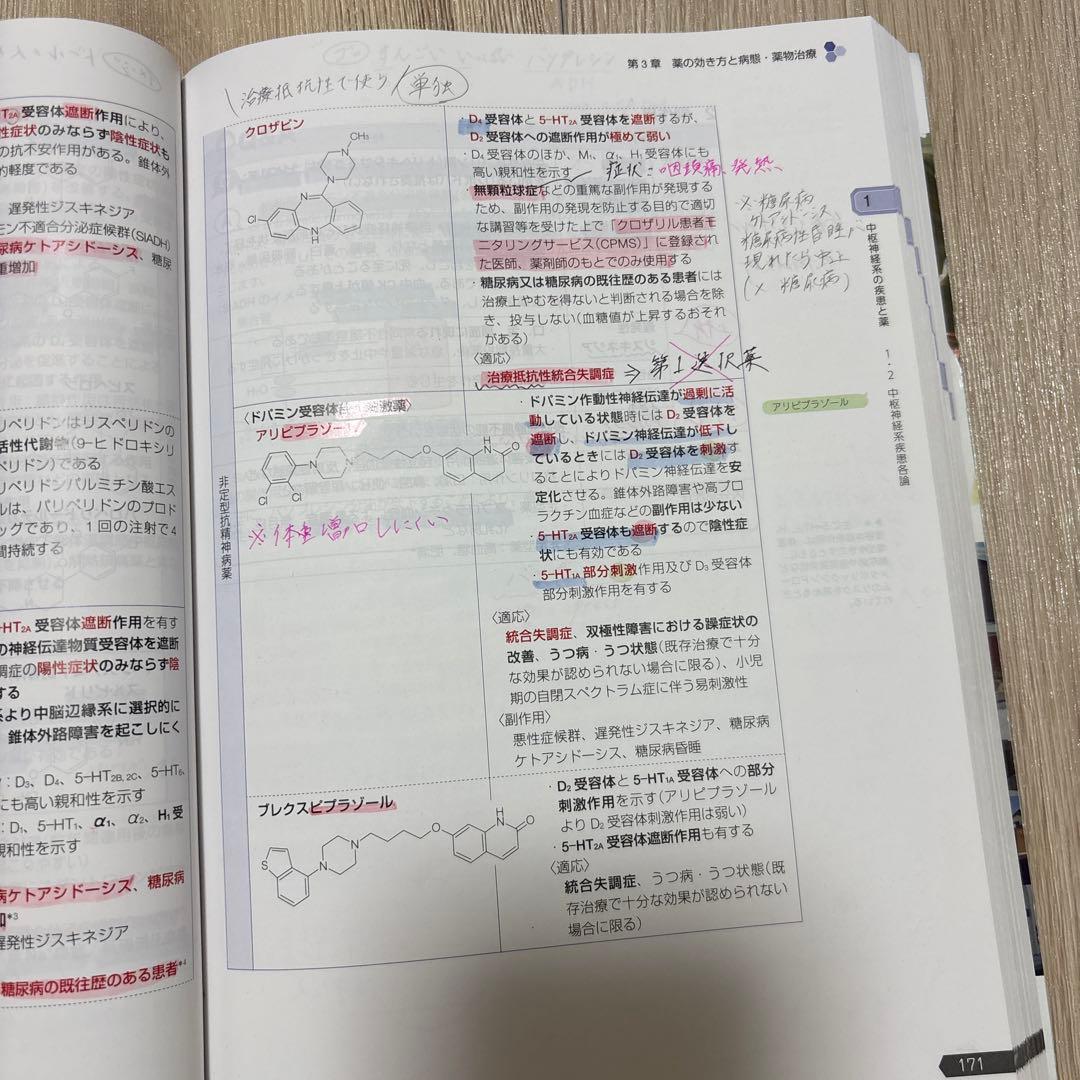 T2A 受容体遮断作用により、
性症状のみならず陰性症状も
の抗不安作用がある。錐体外
的軽度である
遅発性ジスキネジア
モン不適合分泌症候群(SIADH)
尿病ケトアシドーシス、糖尿
重増加
リペリドンはリスペリドンの
活性代謝物(9-ヒドロキシリ
ペリドン)である
リペリドンパルミチン酸エス
ルは、パリペリドンのプロド
ッグであり、1回の注射で4
間持続する
-HT2A 受容体遮断作用を有す
の神経伝達物質受容体を遮断
調症の陽性症状のみならず陰
する
系より中脳辺縁系に選択的に
、錐体外路障害を起こしにく
:D3、D4、5-HT2B, 2C、5-HT6、
にも高い親和性を示す
:D1、5-HT1、α1、α2、H1 受
親和性を示す
病ケトアシドーシス、糖尿病
加*3
遅発性ジスキネジア
糖尿病の既往歴のある患者*4
第3章 薬の効き方と病態・薬物治療
治療抵抗性で使う
単独
クロザピン
CH3
N
N
N
Cl
N
H
・D4 受容体と 5-HT2A 受容体を遮断するが、
D2 受容体への遮断作用が極めて弱い
・D4 受容体のほか、M1、α1、H1 受容体にも
高い親和性を示す
症状:咽頭痛、発熱
・無顆粒球症などの重篤な副作用が発現する
ため、副作用の発現を防止する目的で適切
な講習等を受けた上で「クロザリル患者モ
ニタリングサービス(CPMS)」に登録され
た医師、薬剤師のもとでのみ使用する
・糖尿病又は糖尿病の既往歴のある患者には
治療上やむを得ないと判断される場合を除
き、投与しない(血糖値が上昇するおそれ
がある)
〈適応〉
治療抵抗性統合失調症
⇒ 第1選択薬
※糖尿病
糖尿病性昏睡が
現れたら中止
(× 糖尿病)
非定型抗精神病薬
〈ドパミン受容体部分刺激薬〉
アリピプラゾール
N
N
Cl
Cl
O
H
N
O
※体重増加しにくい
・ドパミン作動性神経伝達が過剰に活
動している状態時には D2 受容体を
遮断し、ドパミン神経伝達が低下し
ているときには D2 受容体を刺激す
ることによりドパミン神経伝達を安
定化させる。錐体外路障害や高プロ
ラクチン血症などの副作用は少ない
・5-HT2A 受容体も遮断するので陰性症
状にも有効である
・5-HT1A 部分刺激作用及び D3 受容体
部分刺激作用を有する
〈適応〉
統合失調症、双極性障害における躁症状の
改善、うつ病・うつ状態(既存治療で十分
な効果が認められない場合に限る)、小児
期の自閉スペクトラム症に伴う易刺激性
〈副作用〉
悪性症候群、遅発性ジスキネジア、糖尿病
ケトアシドーシス、糖尿病昏睡
ブレクスピプラゾール
S
N
N
O
H
N
O
・D2 受容体と 5-HT1A 受容体への部分
刺激作用を示す(アリピプラゾール
より D2 受容体刺激作用は弱い)
・5-HT2A 受容体遮断作用も有する
〈適応〉
統合失調症、うつ病・うつ状態(既
存治療で十分な効果が認められない
場合に限る)
1
中枢神経系の疾患と薬
1・2 中枢神経系疾患各論
アリピプラゾール
171